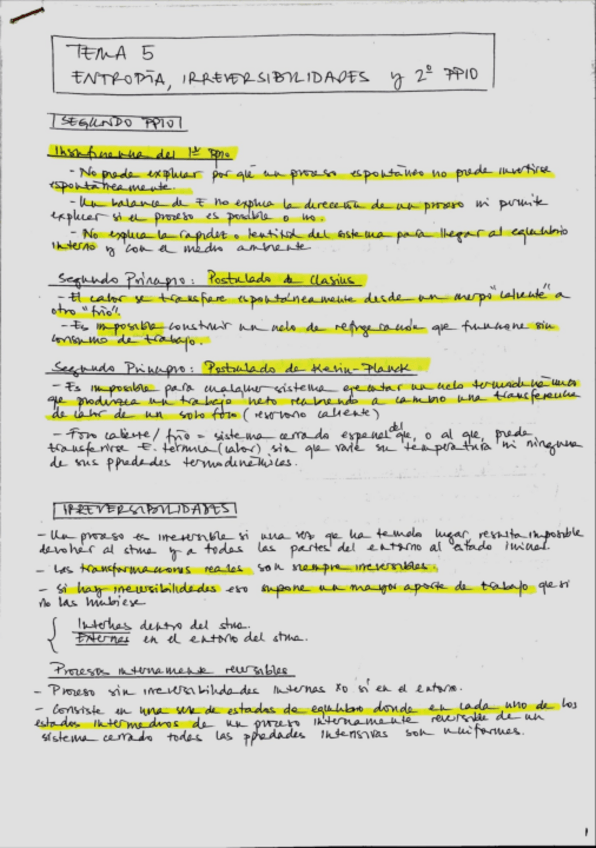 TEMA 5
ENTROPÍA, IRREVERSIBILIDADES y 2º PPIO
SEGUNDO PPIO
Insuficiencia del 1er Ppio
- No puede explicar por qué un proceso espontáneo no puede invertirse
espontáneamente.
- Un balance de E no explica la dirección de un proceso ni permite
explicar si el proceso es posible o no.
- No explica la rapidez o lentitud del sistema para llegar al equilibrio
interno y con el medio ambiente
Segundo Principio: Postulado de Clasius
- El calor se transfiere espontáneamente desde un cuerpo "caliente" a
otro "frío".
- Es imposible construir un ciclo de refrigeración que funcione sin
consumo de trabajo.
Segundo Principio: Postulado de Kelvin-Planck
- Es imposible para cualquier sistema ejecutar un ciclo termodinámico
que produzca un trabajo neto recibiendo a cambio una transferencia
de calor de un solo foco (reservorio caliente)
- Foco caliente/frío = sistema cerrado especial del que, o al que, puede
transferirse E. térmica (calor) sin que varíe su temperatura ni ninguna
de sus ppiedades termodinámicas.
IRREVERSIBILIDADES
- Un proceso es irreversible si una vez que ha tenido lugar, resulta imposible
devolver al stma y a todas las partes del entorno al estado inicial.
- Las transformaciones reales son siempre irreversibles.
- Si hay irreversibilidades eso supone un mayor aporte de trabajo que si
no las hubiese
Internas dentro del stma.
Externas en el entorno del stma.
Procesos internamente reversibles
- Proceso sin irreversibilidades internas xo sí en el entorno.
- Consiste en una serie de estados de equilibrio donde en cada uno de los
estados intermedios de un proceso internamente reversible de un
sistema cerrado todas las ppiedades intensivas son uniformes.
1